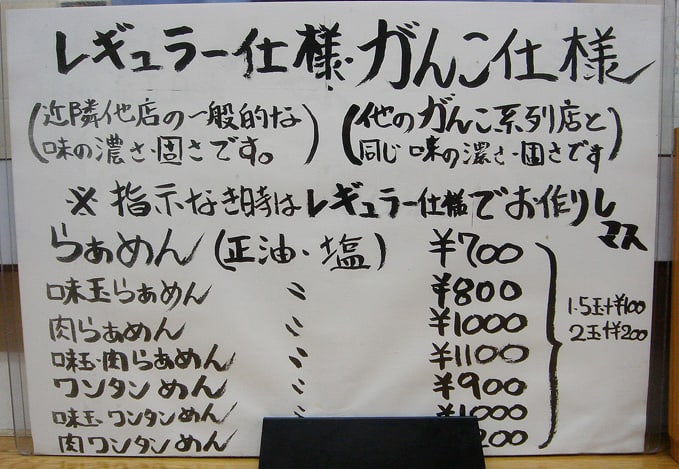 レギュラー仕様・がんこ仕様
(近隣他店の一般的な味の濃さ・固さです。) (他のがんこ系列店と同じ味の濃さ・固さです)
※指示なき時はレギュラー仕様でお作りしマス
らぁめん (正油・塩) ¥700
味玉らぁめん 〃 ¥800
肉らぁめん 〃 ¥1000
味玉・肉らぁめん 〃 ¥1100
ワンタンめん 〃 ¥900
味玉ワンタンめん 〃 ¥1000
肉ワンタンめん 200
1.5玉+¥100
2玉+¥200